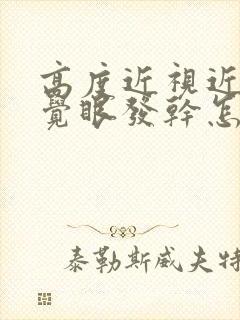 高度近視近
覺眼發幹怎
泰勒斯威夫特